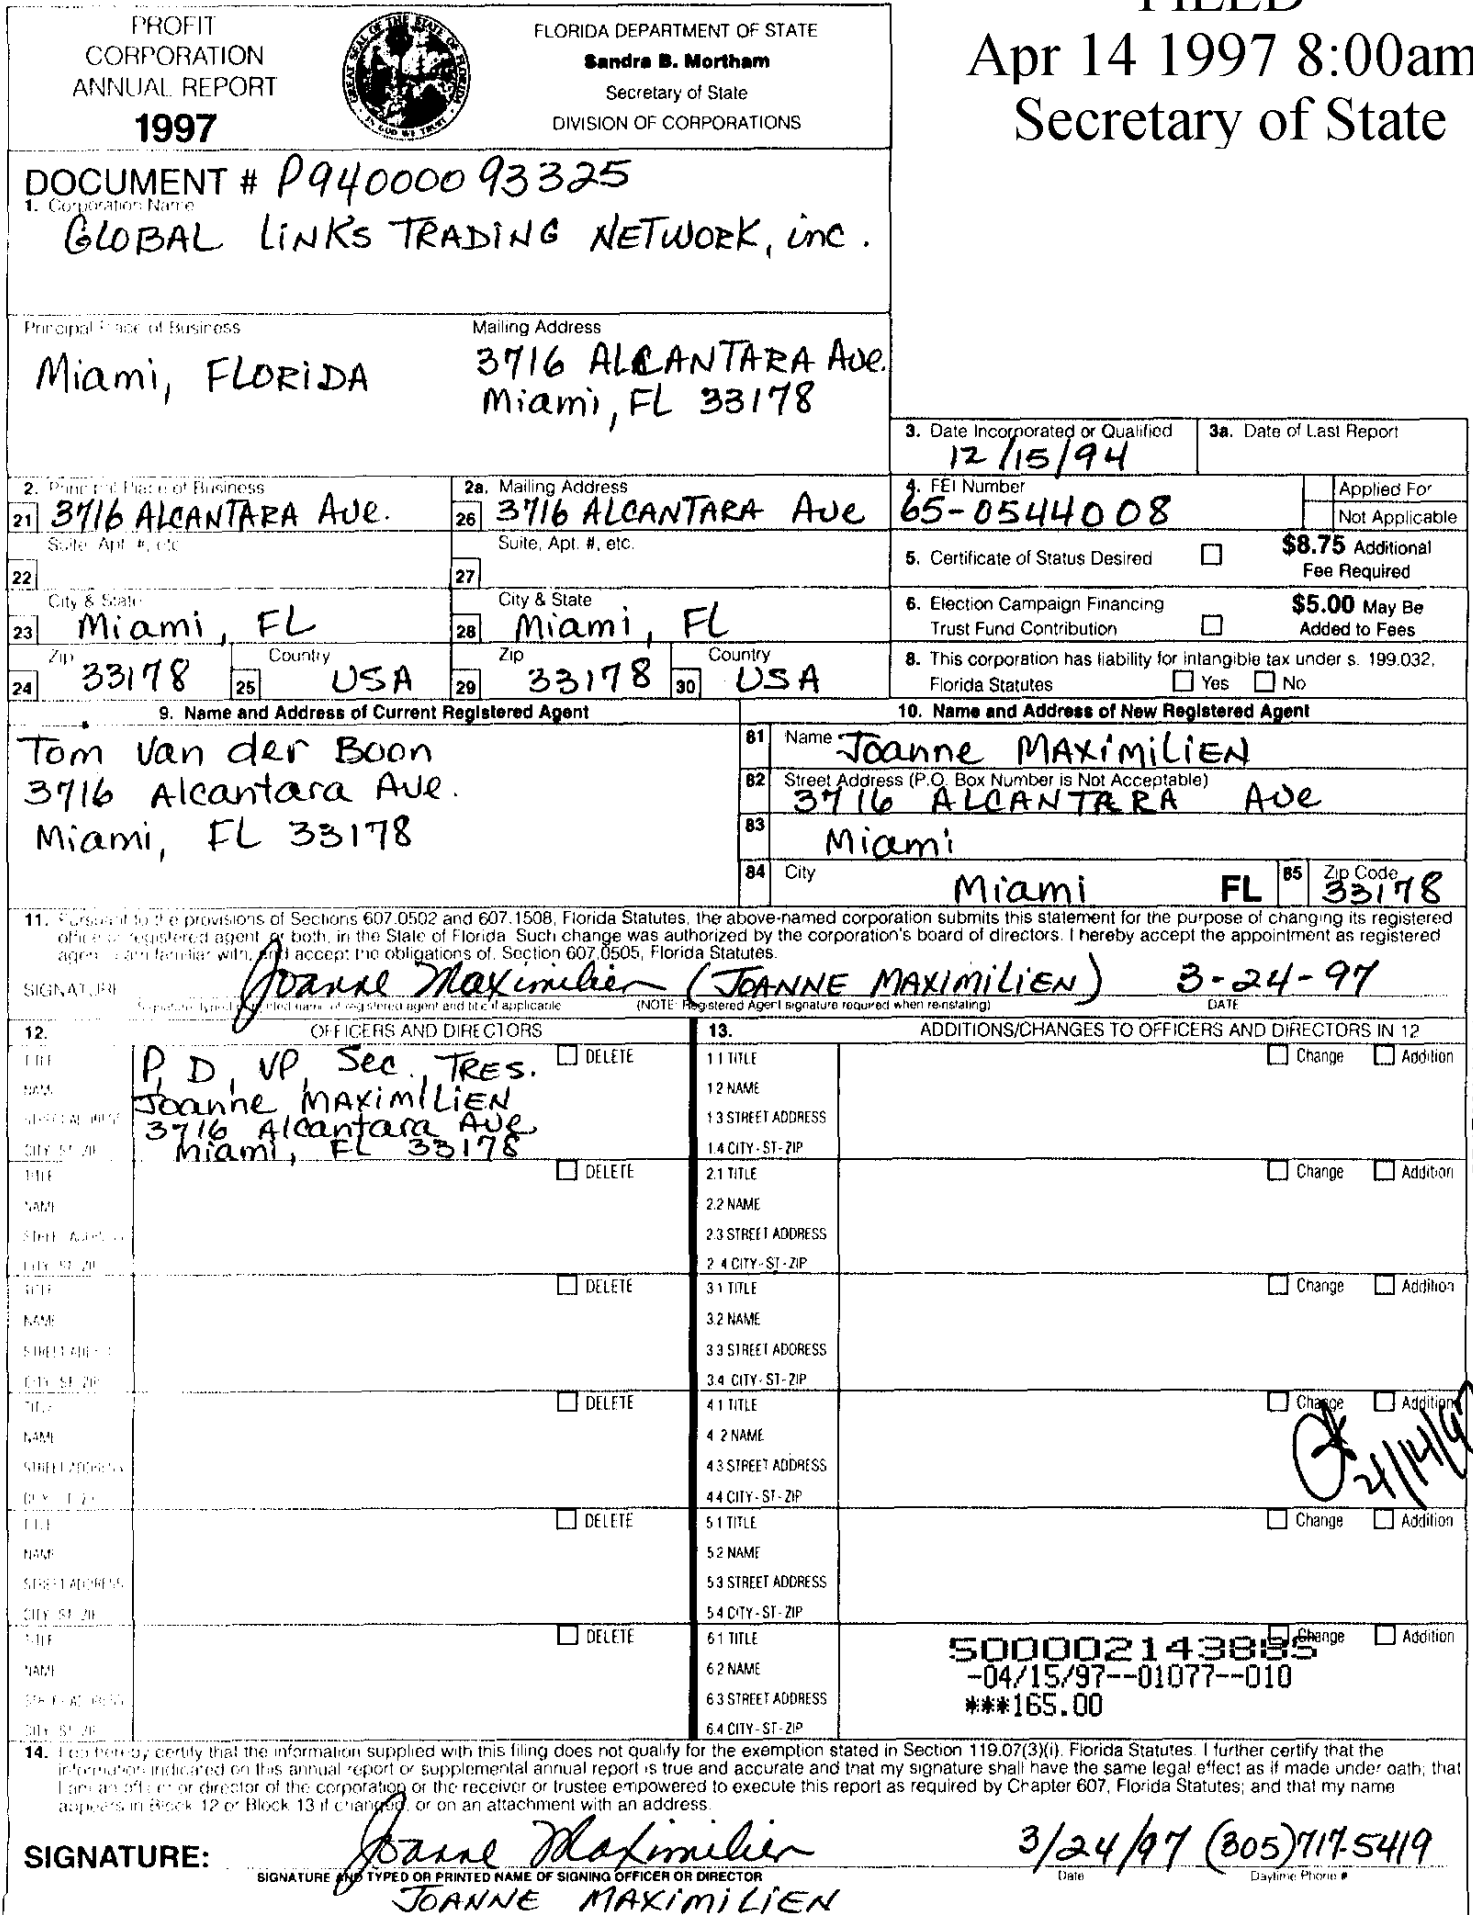 PROFIT
CORPORATION
ANNUAL REPORT
1997
FLORIDA DEPARTMENT OF STATE
Sandra B. Mortham
Secretary of State
DIVISION OF CORPORATIONS
FILED
Apr 14 1997 8:00am
Secretary of State
DOCUMENT # P94000093325
1. Corporation Name
GLOBAL LINKS TRADING NETWORK, inc.
Principal Place of Business
Miami, FLORIDA
Mailing Address
3716 ALCANTARA Ave.
Miami, FL 33178
3. Date Incorporated or Qualified
12/15/94
3a. Date of Last Report
2. Principal Place of Business
21 3716 ALCANTARA AVE.
2a. Mailing Address
26 3716 ALCANTARA AVE
4. FEI Number
65-0544008
Applied For
Not Applicable
Suite, Apt. #, etc.
22
Suite, Apt. #, etc.
27
5. Certificate of Status Desired
$8.75 Additional
Fee Required
City & State
23 Miami, FL
City & State
28 Miami, FL
6. Election Campaign Financing
Trust Fund Contribution
$5.00 May Be
Added to Fees
Zip
24 33178
Country
25 USA
Zip
29 33178
Country
30 USA
8. This corporation has liability for intangible tax under s. 199.032,
Florida Statutes Yes No
9. Name and Address of Current Registered Agent
Tom Van der Boon
3716 Alcantara Ave.
Miami, FL 33178
10. Name and Address of New Registered Agent
81 Name Joanne MAXIMILIEN
82 Street Address (P.O. Box Number is Not Acceptable)
3716 ALCANTARA AVE
83 Miami
84 City Miami FL 85 Zip Code 33178
11. Pursuant to the provisions of Sections 607.0502 and 607.1508, Florida Statutes, the above-named corporation submits this statement for the purpose of changing its registered
office or registered agent, or both, in the State of Florida. Such change was authorized by the corporation's board of directors. I hereby accept the appointment as registered
agent. I am familiar with, and accept the obligations of, Section 607.0505, Florida Statutes.
SIGNATURE Joanne Maximilien (JOANNE MAXIMILIEN) 3-24-97
Signature, typed or printed name of registered agent and title if applicable (NOTE: Registered Agent signature required when reinstating) DATE
12. OFFICERS AND DIRECTORS
TITLE P, D, VP, Sec., TRES. DELETE
NAME Joanne MAXIMILIEN
STREET ADDRESS 3716 Alcantara Ave
CITY-ST-ZIP Miami, FL 33178
TITLE DELETE
NAME
STREET ADDRESS
CITY-ST-ZIP
TITLE DELETE
NAME
STREET ADDRESS
CITY-ST-ZIP
TITLE DELETE
NAME
STREET ADDRESS
CITY-ST-ZIP
TITLE DELETE
NAME
STREET ADDRESS
CITY-ST-ZIP
TITLE DELETE
NAME
STREET ADDRESS
CITY-ST-ZIP
13. ADDITIONS/CHANGES TO OFFICERS AND DIRECTORS IN 12
1.1 TITLE Change Addition
1.2 NAME
1.3 STREET ADDRESS
1.4 CITY-ST-ZIP
2.1 TITLE Change Addition
2.2 NAME
2.3 STREET ADDRESS
2.4 CITY-ST-ZIP
3.1 TITLE Change Addition
3.2 NAME
3.3 STREET ADDRESS
3.4 CITY-ST-ZIP
4.1 TITLE Change Addition
4.2 NAME
4.3 STREET ADDRESS
4.4 CITY-ST-ZIP
5.1 TITLE Change Addition
5.2 NAME
5.3 STREET ADDRESS
5.4 CITY-ST-ZIP
6.1 TITLE Change Addition
6.2 NAME
6.3 STREET ADDRESS
6.4 CITY-ST-ZIP
500002143885
-04/15/97--01077--010
***165.00
14. I do hereby certify that the information supplied with this filing does not qualify for the exemption stated in Section 119.07(3)(i), Florida Statutes. I further certify that the
information indicated on this annual report or supplemental annual report is true and accurate and that my signature shall have the same legal effect as if made under oath; that
I am an officer or director of the corporation or the receiver or trustee empowered to execute this report as required by Chapter 607, Florida Statutes; and that my name
appears in Block 12 or Block 13 if changed, or on an attachment with an address.
SIGNATURE: Joanne Maximilien 3/24/97 (305)717-5419
SIGNATURE AND TYPED OR PRINTED NAME OF SIGNING OFFICER OR DIRECTOR Date Daytime Phone #
JOANNE MAXIMILIEN